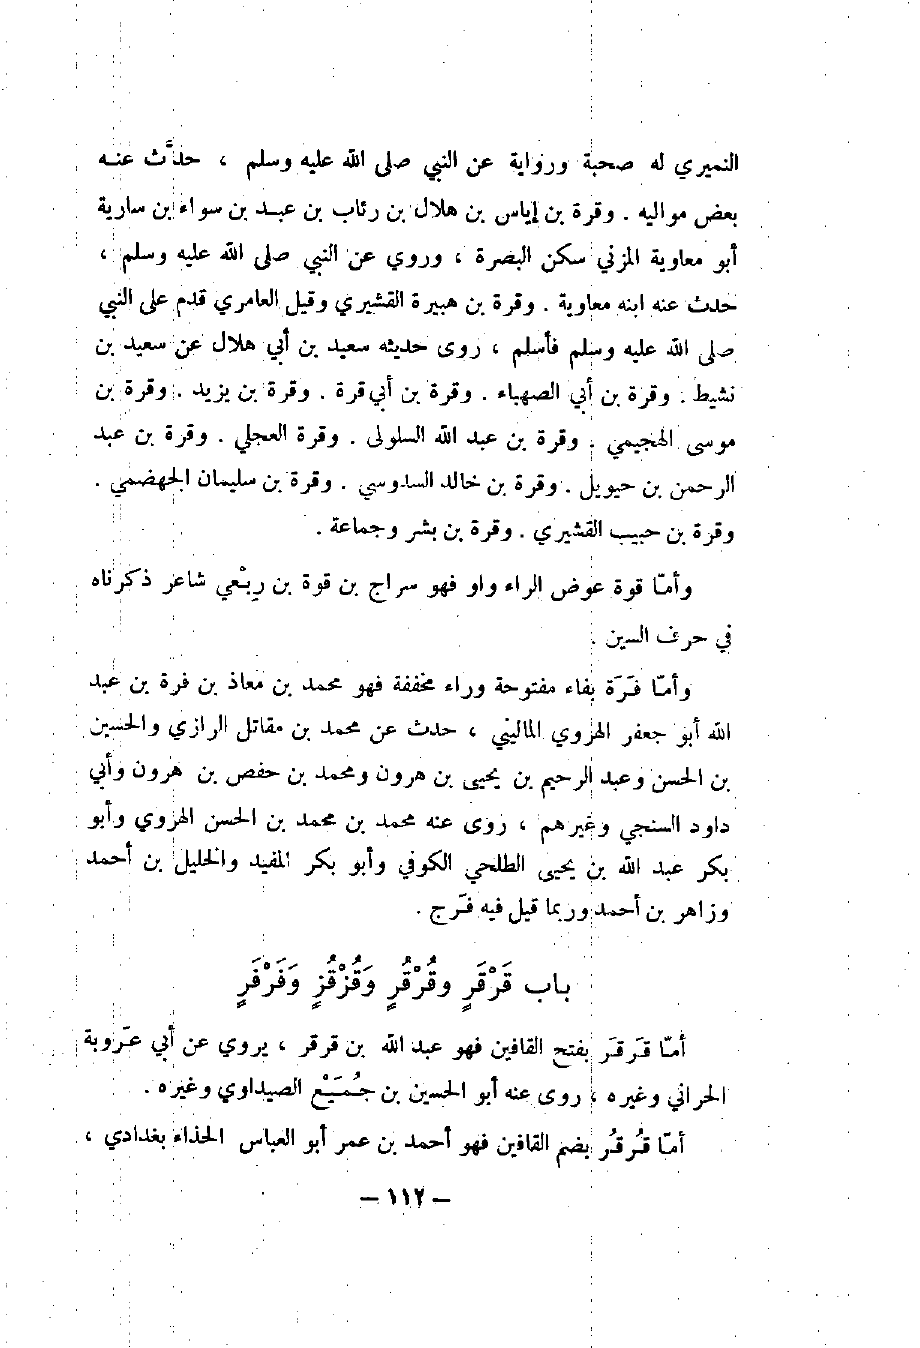 النميري له صحبة ورواية عن النبي صلى الله عليه وسلم ، حدَّث عنه
بعض مواليه . وقرة بن إياس بن هلال بن رئاب بن عبد بن سواء بن سارية
أبو معاوية المزني سكن البصرة ، وروي عن النبي صلى الله عليه وسلم ،
حدث عنه ابنه معاوية . وقرة بن هبيرة القشيري وقيل العامري قدم على النبي
صلى الله عليه وسلم فأسلم ، روى حديثه سعيد بن أبي هلال عن سعيد بن
نشيط . وقرة بن أبي الصهباء . وقرة بن أبي قرة . وقرة بن يزيد . وقرة بن
موسى الهجيمي . وقرة بن عبد الله السلولى . وقرة العجلي . وقرة بن عبد
الرحمن بن حيويل . وقرة بن خالد السدوسي . وقرة بن سليمان الجهضمي .
وقرة بن حبيب القشيري . وقرة بن بشر وجماعة .
وأمّا قوة عوض الراء واو فهو سراج بن قوة بن رِبْعي شاعر ذكرناه
في حرف السين .
وأمّا فَرَة بفاء مفتوحة وراء مخففة فهو محمد بن معاذ بن فرة بن عبد
الله أبو جعفر الهروي الماليني ، حدث عن محمد بن مقاتل الرازي والحسين
بن الحسن وعبد الرحيم بن يحيى بن هرون ومحمد بن حفص بن هرون وأبي
داود السنجي وغيرهم ، روى عنه محمد بن محمد بن الحسن الهروي وأبو
بكر عبد الله بن يحيى الطلحي الكوفي وأبو بكر المفيد والخليل بن أحمد
وزاهر بن أحمد وربما قيل فيه فَرج .
باب قَرْقَرٍ وقُرْقُرٍ وَقُزْقُزٍ وَفَرْفَرٍ
أمّا قَرقَر بفتح القافين فهو عبد الله بن قرقر ، يروي عن أبي عَروبة
الحراني وغيره ، روى عنه أبو الحسين بن جُمَيْع الصيداوي وغيره .
أمّا قُرقُر بضم القافين فهو أحمد بن عمر أبو العباس الحذاء بغدادي ،
– ١١٢ –